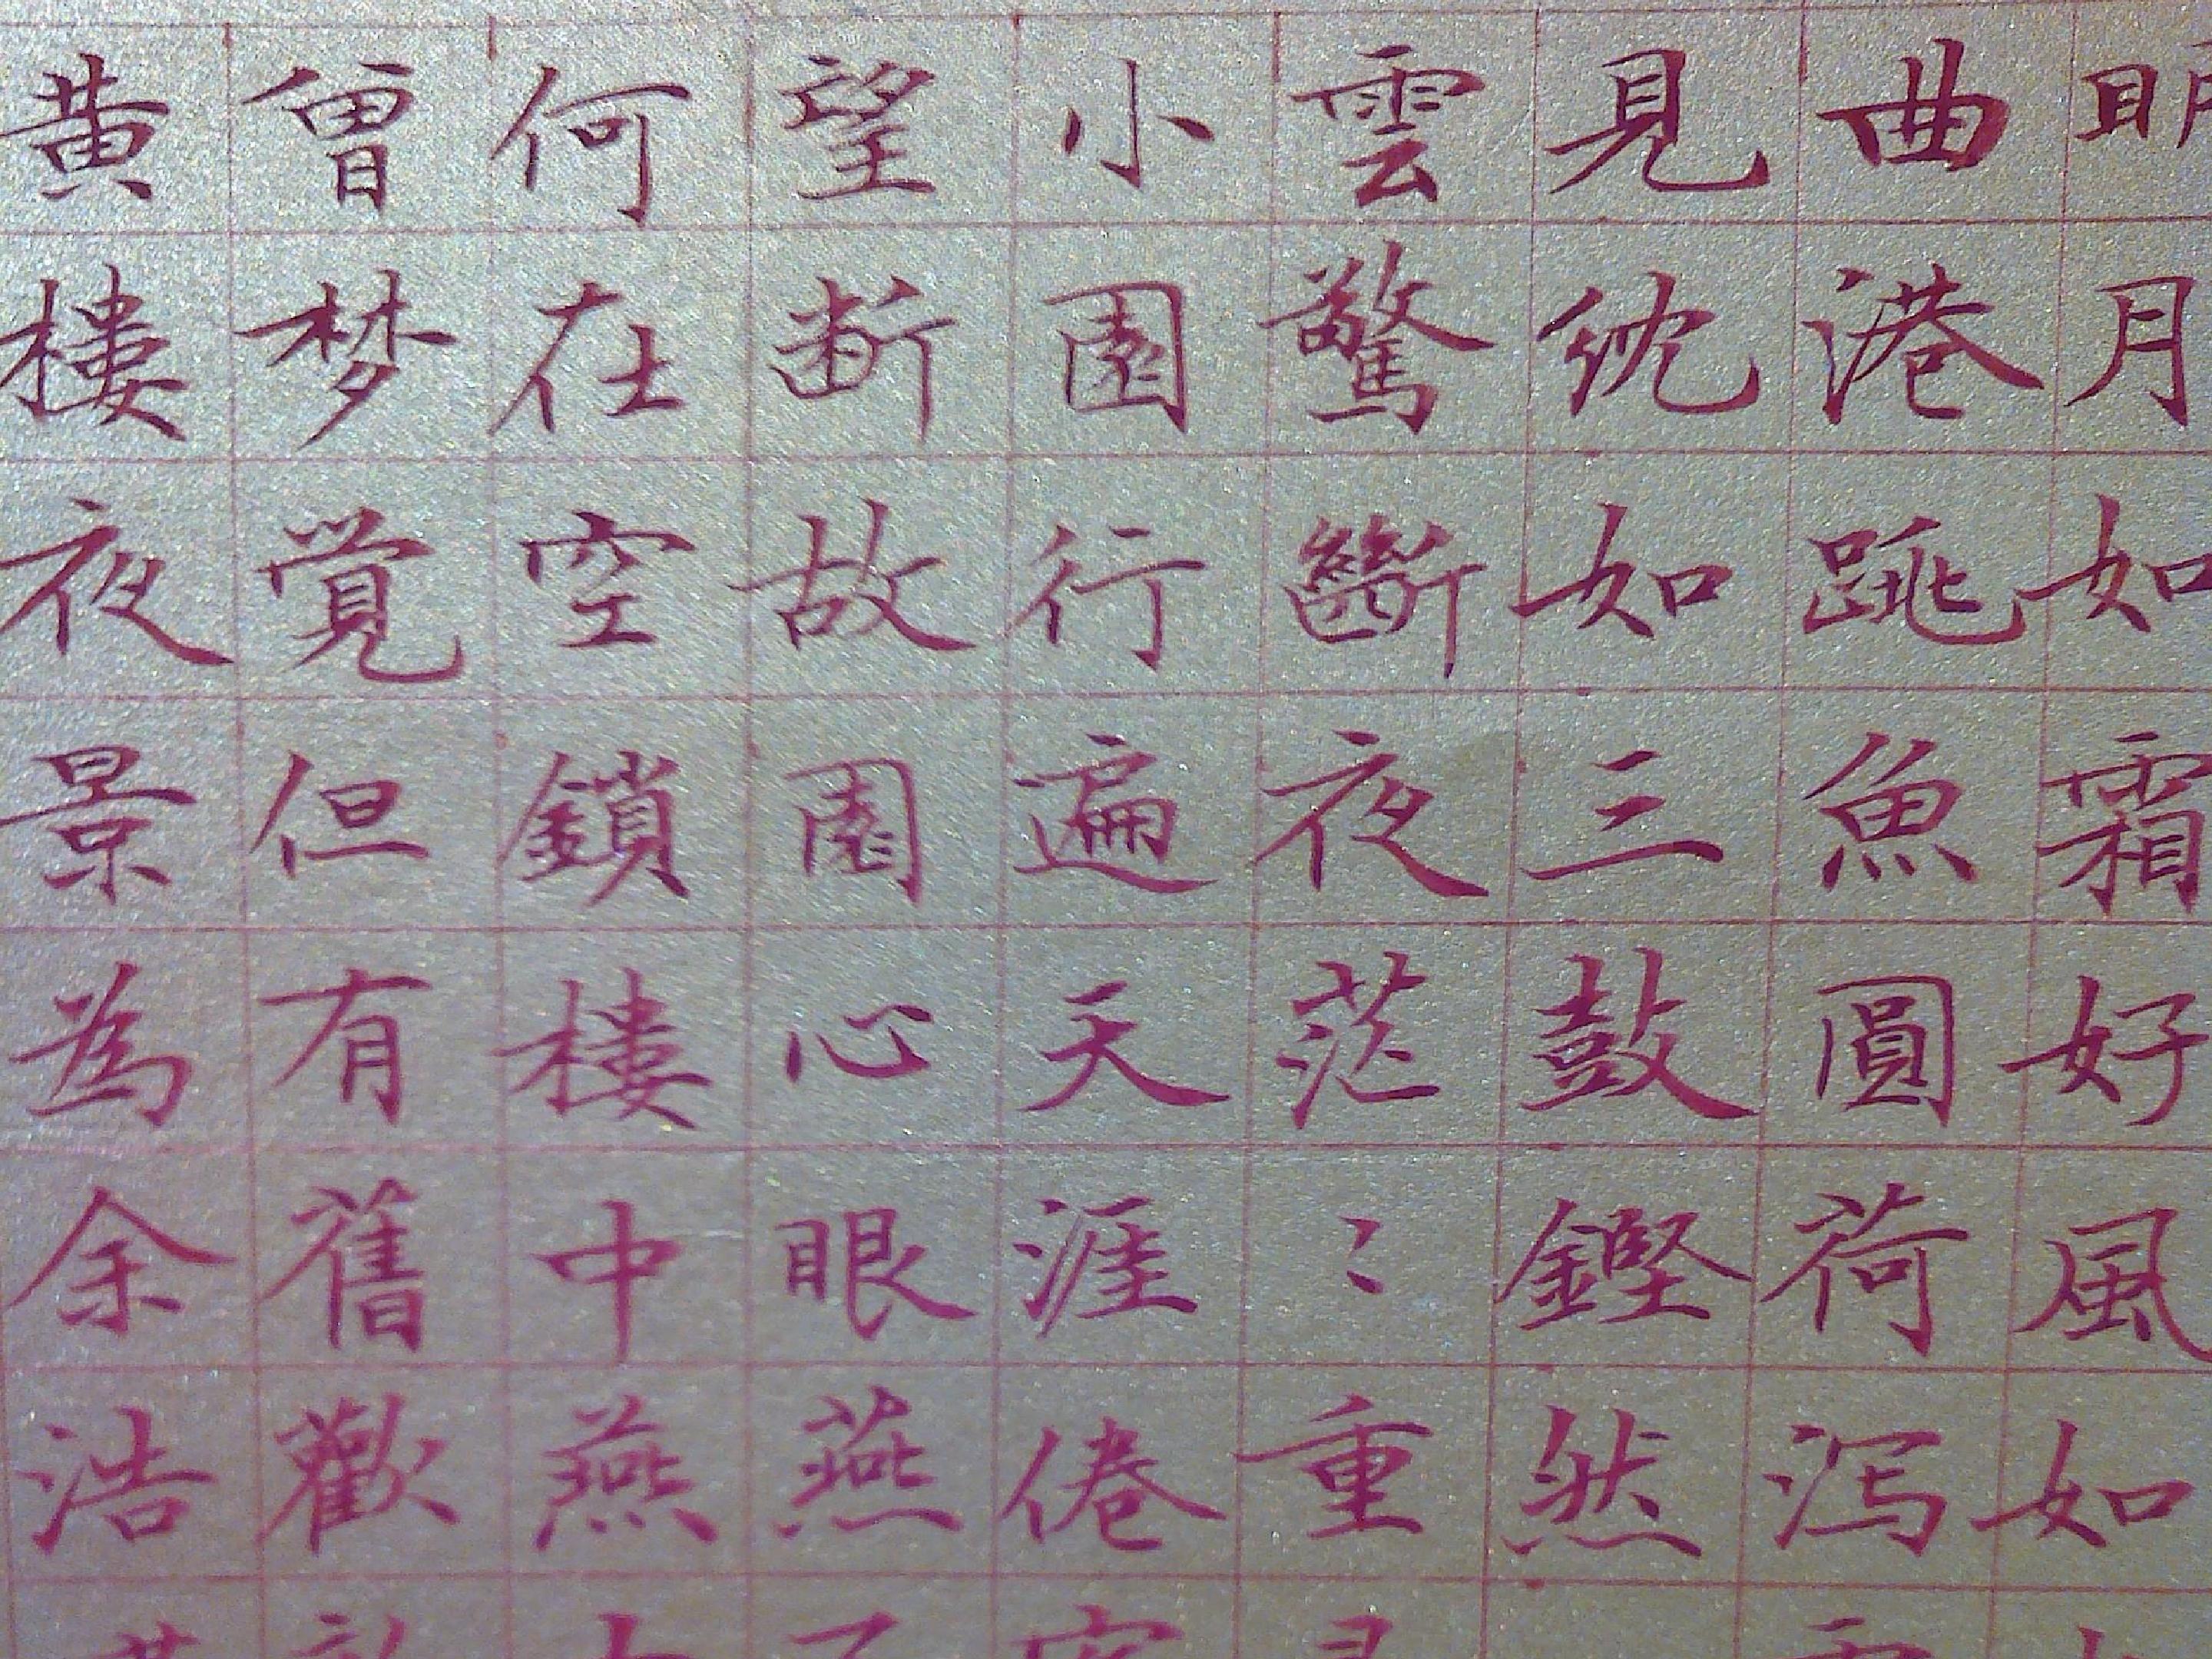 明月如霜好風如
曲港跳魚圓荷泻
見紞如三鼓鏗然
雲驚斷夜茫〻重
小園行遍天涯倦
望断故園心眼燕
何在空鎖樓中燕
曾梦覚但有舊歡
黄樓夜景為余浩